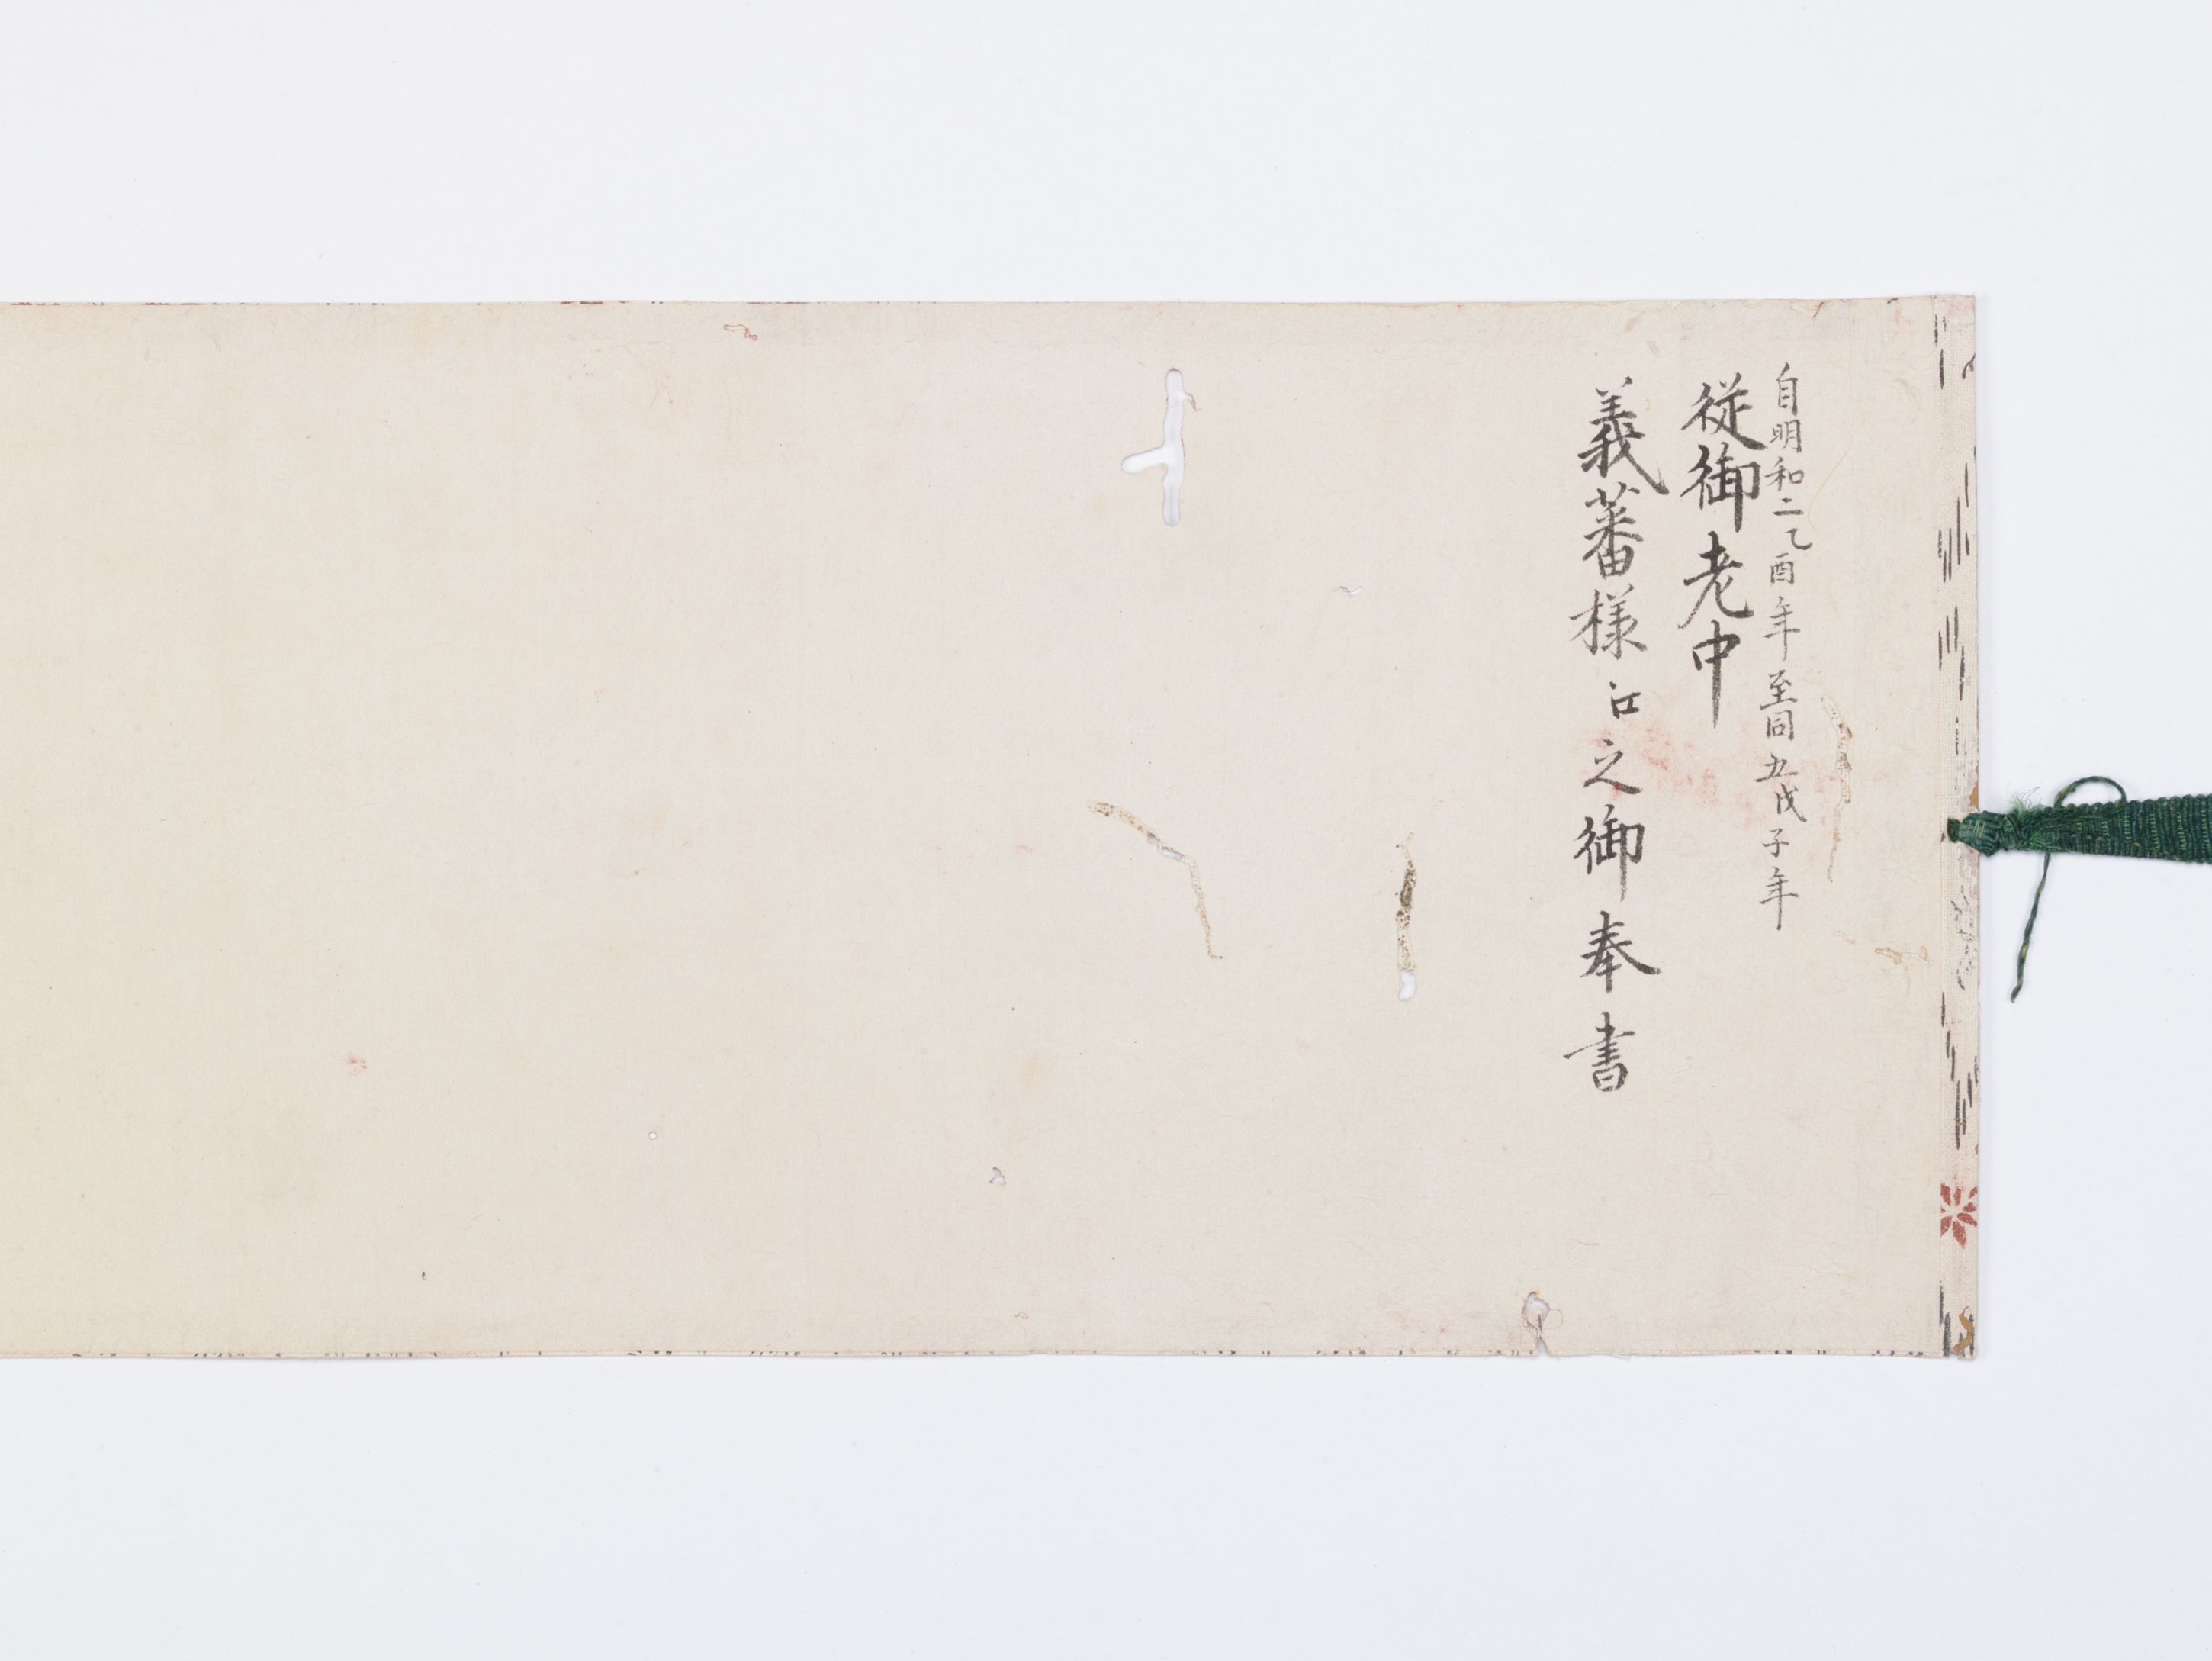 自明和二乙酉年至同五戊子年
従御老中
義蕃様江之御奉書